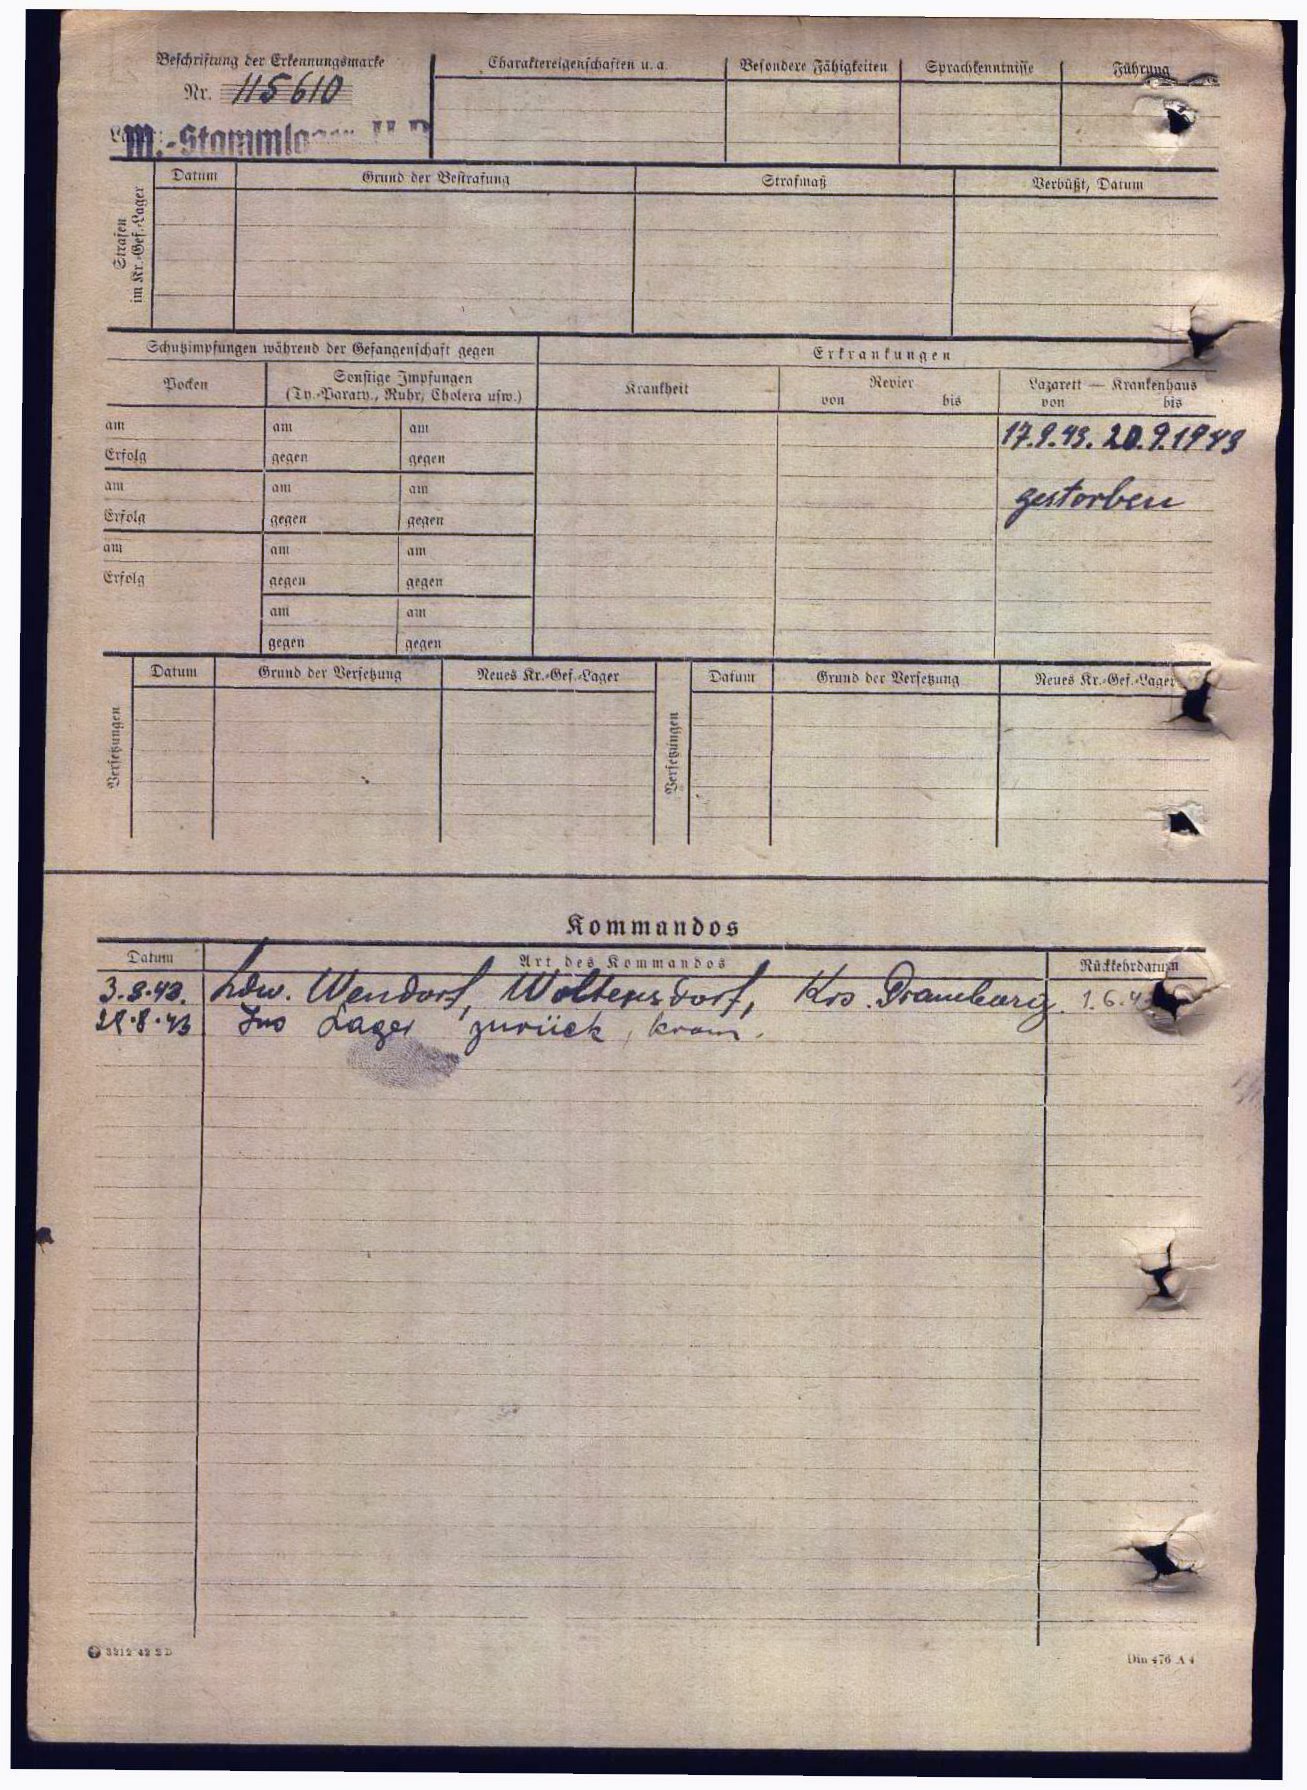 Beschriftung der Erkennungsmarke
Nr. 115610
M.-Stammlager II D
Charaktereigenschaften u. a.
Besondere Fähigkeiten
Sprachkenntnisse
Führung
Strafen
im Kr.-Gef.-Lager
Datum
Grund der Bestrafung
Strafmaß
Verbüßt, Datum
Schutzimpfungen während der Gefangenschaft gegen
Erkrankungen
Pocken
Sonstige Impfungen
(Ty.-Paraty., Ruhr, Cholera usw.)
Krankheit
Revier
von bis
Lazarett — Krankenhaus
von bis
am am am
17.9.43. 20.9.1943
Erfolg gegen gegen
am am am
gestorben
Erfolg gegen gegen
am am am
Erfolg gegen gegen
am am
gegen gegen
Versetzungen
Datum Grund der Versetzung Neues Kr.-Gef.-Lager
Versetzungen
Datum Grund der Versetzung Neues Kr.-Gef.-Lager
Kommandos
Datum Art des Kommandos Rückkehrdatum
3.8.43. Ldw. Wendorf, Woltersdorf, Krs. Dramburg. 1.6.4
Ins Lager zurück,
3212 42 2 D
Din 476 A 4